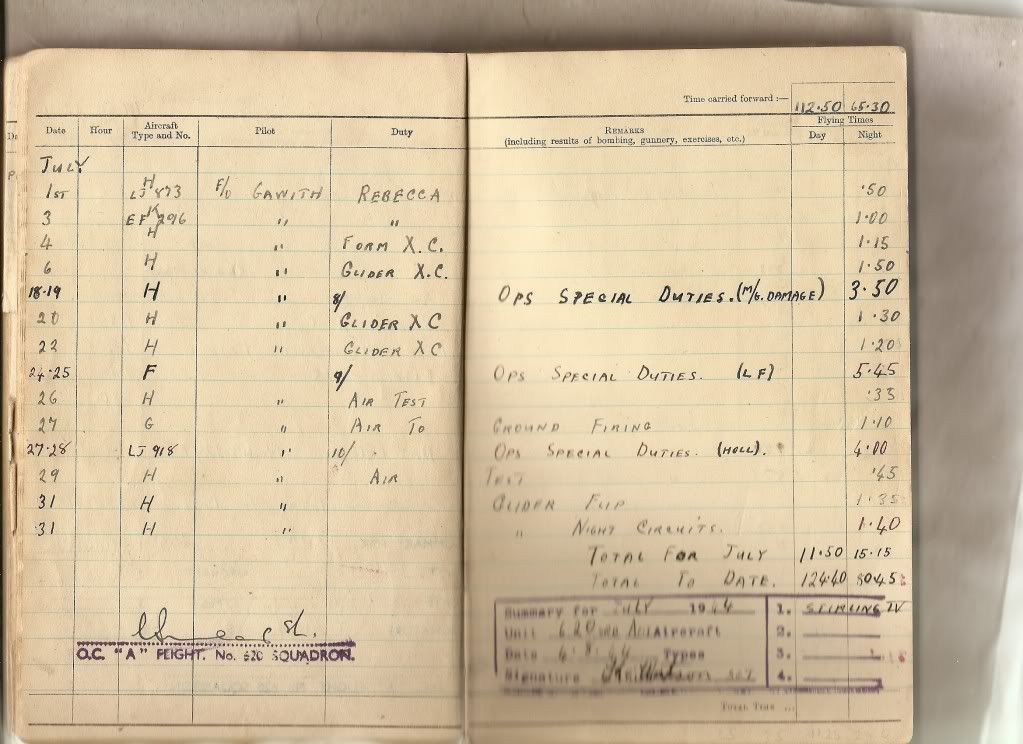 Time carried forward :— 112.50 65.30
Date Hour Aircraft Type and No. Pilot Duty REMARKS (including results of bombing, gunnery, exercises, etc.) Flying Times Day Night
JULY.
1ST H LJ 873 F/O GAWITH REBECCA .50
3 K EF 296 " " 1.00
4 H " FORM X.C. 1.15
6 H " GLIDER X.C. 1.50
18-19 H " 8/ OPS SPECIAL DUTIES. (M/G. DAMAGE) 3.50
20 H " GLIDER XC 1.30
22 H " GLIDER XC 1.20
24-25 F 9/ OPS SPECIAL DUTIES. (LF) 5.45
26 H " AIR TEST .35
27 G " AIR TO GROUND FIRING 1.10
27-28 LJ 918 " 10/ OPS SPECIAL DUTIES. (HOLL). 4.00
29 H " AIR TEST .45
31 H " GLIDER FLIP 1.35
31 H " " NIGHT CIRCUITS. 1.40
TOTAL FOR JULY 11.50 15.15
TOTAL TO DATE. 124.40 80.45
O.C. "A" FLIGHT. No. 620 SQUADRON.
Summary for JULY 1944 1. STIRLING IV
Unit 620 Aircraft 2.
Date 6.8.44 Types 3.
Signature 4.
TOTAL TIME ...